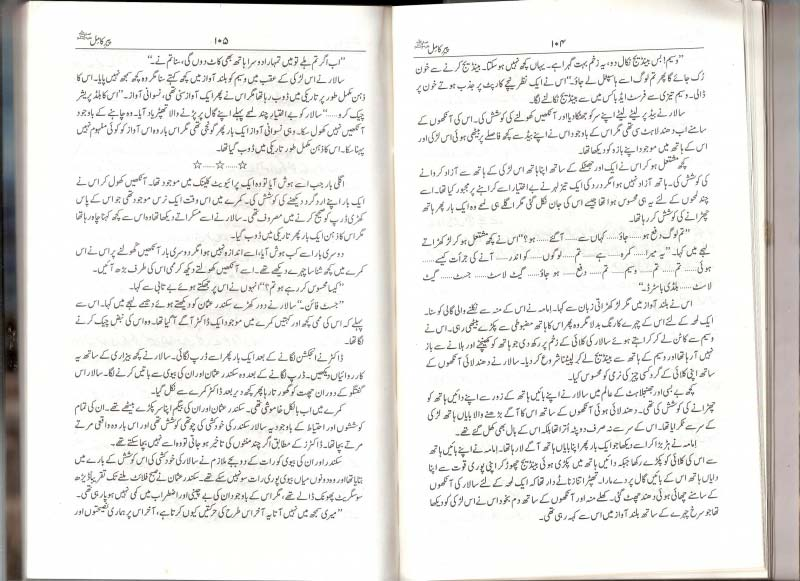 ۱۰۴
پیر کامل ﷺ
"وسیم! بس بینڈیج نکال دو، یہ زخم بہت گہرا ہے۔ یہاں کچھ نہیں ہو سکتا۔ بینڈیج کرنے سے خون
رُک جائے گا پھر تم لوگ اسے ہاسپٹل لے جاؤ۔" اس نے ایک نظر نیچے کارپٹ پر جذب ہوتے خون پر
ڈالی۔ وسیم تیزی سے فرسٹ ایڈ باکس میں سے بینڈیج نکالنے لگا۔
سالار نے بیڈ پر لیٹے لیٹے اپنے سر کو جھٹکا دیا اور آنکھیں کھولنے کی کوشش کی۔ اس کی آنکھوں کے
سامنے اب دھندلاہٹ سی تھی مگر اس کے باوجود اس نے اپنے بیڈ سے کچھ فاصلے پر بیٹھی ہوئی اس لڑکی اور
اس کے ہاتھ میں موجود اپنے بازو کو دیکھا تھا۔
کچھ مشتعل ہو کر اس نے ایک اور جھٹکے کے ساتھ اپنا ہاتھ اس لڑکی کے ہاتھ سے آزاد کروانے
کی کوشش کی۔ ہاتھ آزاد نہیں ہوا مگر درد کی ایک تیز لہر نے بے اختیار اسے کراہنے پر مجبور کیا تھا۔ اسے
چند لمحوں کے لئے یہی محسوس ہوا تھا جیسے اس کی جان نکل گئی مگر اگلے ہی لمحے وہ ایک بار پھر ہاتھ
چھڑانے کی کوشش کر رہا تھا۔
"تم لوگ دفع ہو ...... جاؤ ...... کہاں سے ...... آ گئے ...... ہو؟" اس نے کچھ مشتعل ہو کر لڑکھڑاتے
لہجے میں کہا۔ "یہ میرا ...... کمرہ ...... ہے ...... تم ...... لوگوں ...... کو اندر ...... آنے کی جرأت کیسے
ہوئی ...... تم ...... تم ...... وسیم ...... تم ...... دفع ...... ہو جاؤ ...... گیٹ لاسٹ ...... جسٹ ...... گیٹ
لاسٹ ...... بلڈی باسٹرڈ۔"
اس نے بلند آواز میں مگر لڑکھڑاتی زبان سے کہا۔ امامہ نے اس کے منہ سے نکلنے والی گالی کو سنا۔
ایک لمحہ کے لئے اس کے چہرے کا رنگ بدلا مگر وہ پھر اس کا ہاتھ مضبوطی سے پکڑے بیٹھی رہی۔ اس نے
وسیم سے کاٹن لے کر کراہتے ہوئے سالار کی کلائی کے زخم پر رکھ دی جو ہاتھ کو کھینچنے اور ہلانے سے باز
نہیں آ رہا تھا اور وسیم کے ہاتھ سے بینڈیج لے کر لپیٹنا شروع کر دیا۔ سالار نے دھندلائی آنکھوں کے
ساتھ اپنی کلائی کے گرد کسی چیز کی نرمی کو محسوس کیا۔
کچھ بے بسی اور جھنجھلاہٹ کے عالم میں سالار نے اپنے بائیں ہاتھ کے زور سے اپنے دائیں ہاتھ کو
چھڑانے کی کوشش کی تھی۔ دھندلائی ہوئی آنکھوں کے ساتھ اس کا آگے بڑھنے والا بایاں ہاتھ لڑکی
کے سر سے ٹکرایا تھا۔ اس کے سر سے نہ صرف دوپٹہ اترا تھا بلکہ اس کے بال بھی کھل گئے تھے۔
امامہ نے ہڑبڑا کر اسے دیکھا جو ایک بار پھر اپنا بایاں ہاتھ آگے لا رہا تھا۔ امامہ نے اپنے بائیں ہاتھ
سے اس کی کلائی کو پکڑے رکھا جبکہ دائیں ہاتھ میں پکڑی ہوئی بینڈیج چھوڑ کر اپنی پوری قوت سے اپنا
دایاں ہاتھ اس کے بائیں گال پر دے مارا۔ تھپڑ اتنا زناٹے دار تھا کہ ایک لمحہ کے لئے سالار کی آنکھوں
کے سامنے چھائی ہوئی دھند چھٹ گئی۔ کھلے منہ اور آنکھوں کے ساتھ دم بخود اس نے اس لڑکی کو دیکھا
تھا جو سرخ چہرے کے ساتھ بلند آواز میں اس سے کہہ رہی تھی۔
۱۰۵
پیر کامل ﷺ
"اب اگر تم ہلے تو میں تمہارا دوسرا ہاتھ بھی کاٹ دوں گی، سنا تم نے۔"
سالار نے اس لڑکی کے عقب میں وسیم کو بلند آواز میں کچھ کہتے سنا مگر وہ کچھ سمجھ نہیں پایا۔ اس کا
ذہن مکمل طور پر تاریکی میں ڈوب رہا تھا مگر اس نے پھر ایک آواز سنی تھی، نسوانی آواز۔ "اس کا بلڈ پریشر
چیک کرو ......" سالار کو بے اختیار چند لمحے پہلے اپنے گال پر پڑنے والا تھپڑ یاد آیا۔ وہ چاہنے کے باوجود
آنکھیں نہیں کھول سکا۔ وہی نسوانی آواز ایک بار پھر گونجی تھی مگر اس بار وہ اس آواز کو کوئی مفہوم نہیں
پہنا سکا۔ اس کا ذہن مکمل طور پر تاریکی میں ڈوب گیا تھا۔
☆......☆......☆
اگلی بار جب اسے ہوش آیا تو وہ ایک پرائیویٹ کلینک میں موجود تھا۔ آنکھیں کھول کر اس نے
ایک بار اپنے ارد گرد دیکھنے کی کوشش کی۔ کمرے میں اس وقت ایک نرس موجود تھی جو اس کے پاس
کھڑی ڈرپ کو صحیح کرنے میں مصروف تھی۔ سالار نے اسے مسکراتے دیکھا تھا وہ اس سے کچھ کہنا چاہ رہا تھا
مگر اس کا ذہن ایک بار پھر تاریکی میں ڈوب گیا۔
دوسری بار اسے کب ہوش آیا، اسے اندازہ نہیں ہوا مگر دوسری بار آنکھیں کھولنے پر اس نے اس
کمرے میں کچھ شناسا چہرے دیکھے تھے۔ اسے آنکھیں کھولتے دیکھ کر ممی اس کی طرف بڑھ آئیں۔
"کیسا محسوس کر رہے ہو تم؟" انہوں نے اس پر جھکتے ہوئے بے تابی سے کہا۔
"جسٹ فائن۔" سالار نے دور کھڑے سکندر عثمان کو دیکھتے ہوئے دھیمے لہجے میں کہا۔ اس سے
پہلے کہ اس کی ممی کچھ اور کہتیں کمرے میں موجود ایک ڈاکٹر آگے آ گیا تھا۔ وہ اس کی نبض چیک کرنے
لگا تھا۔
ڈاکٹر نے انجکشن لگانے کے بعد ایک بار پھر اسے ڈرپ لگائی۔ سالار نے کچھ بیزاری کے ساتھ یہ
کارروائیاں دیکھیں۔ ڈرپ لگانے کے بعد وہ سکندر عثمان اور ان کی بیوی سے باتیں کرنے لگا۔ سالار اس
گفتگو کے دوران چھت کو گھورتا رہا پھر کچھ دیر بعد ڈاکٹر کمرے سے نکل گیا۔
کمرے میں اب بالکل خاموشی تھی۔ سکندر عثمان اور ان کی بیگم اپنا سر پکڑے بیٹھے تھے۔ ان کی تمام
کوششوں اور احتیاط کے باوجود یہ سالار سکندر کی خودکشی کی چوتھی کوشش تھی اور اس بار وہ واقعی مرتے
مرتے بچا تھا۔ ڈاکٹرز کے مطابق اگر چند منٹوں کی تاخیر ہو جاتی تو وہ اسے نہیں بچا سکتے تھے۔
سکندر اور ان کی بیوی کو رات کے دو بجے ملازم نے سالار کی خودکشی کی اس کوشش کے بارے میں
بتایا تھا اور وہ دونوں میاں بیوی پوری رات سو نہیں سکے تھے۔ سکندر عثمان نے صبح فلائٹ ملنے تک تقریباً ڈیڑھ
سو سگریٹ پھونک ڈالے تھے، مگر اس کے باوجود ان کی بے چینی اور اضطراب میں کمی نہیں ہو پا رہی تھی۔
"میری سمجھ میں نہیں آتا یہ آخر اس طرح کی حرکتیں کیوں کرتا ہے، آخر اس پر ہماری نصیحتوں اور